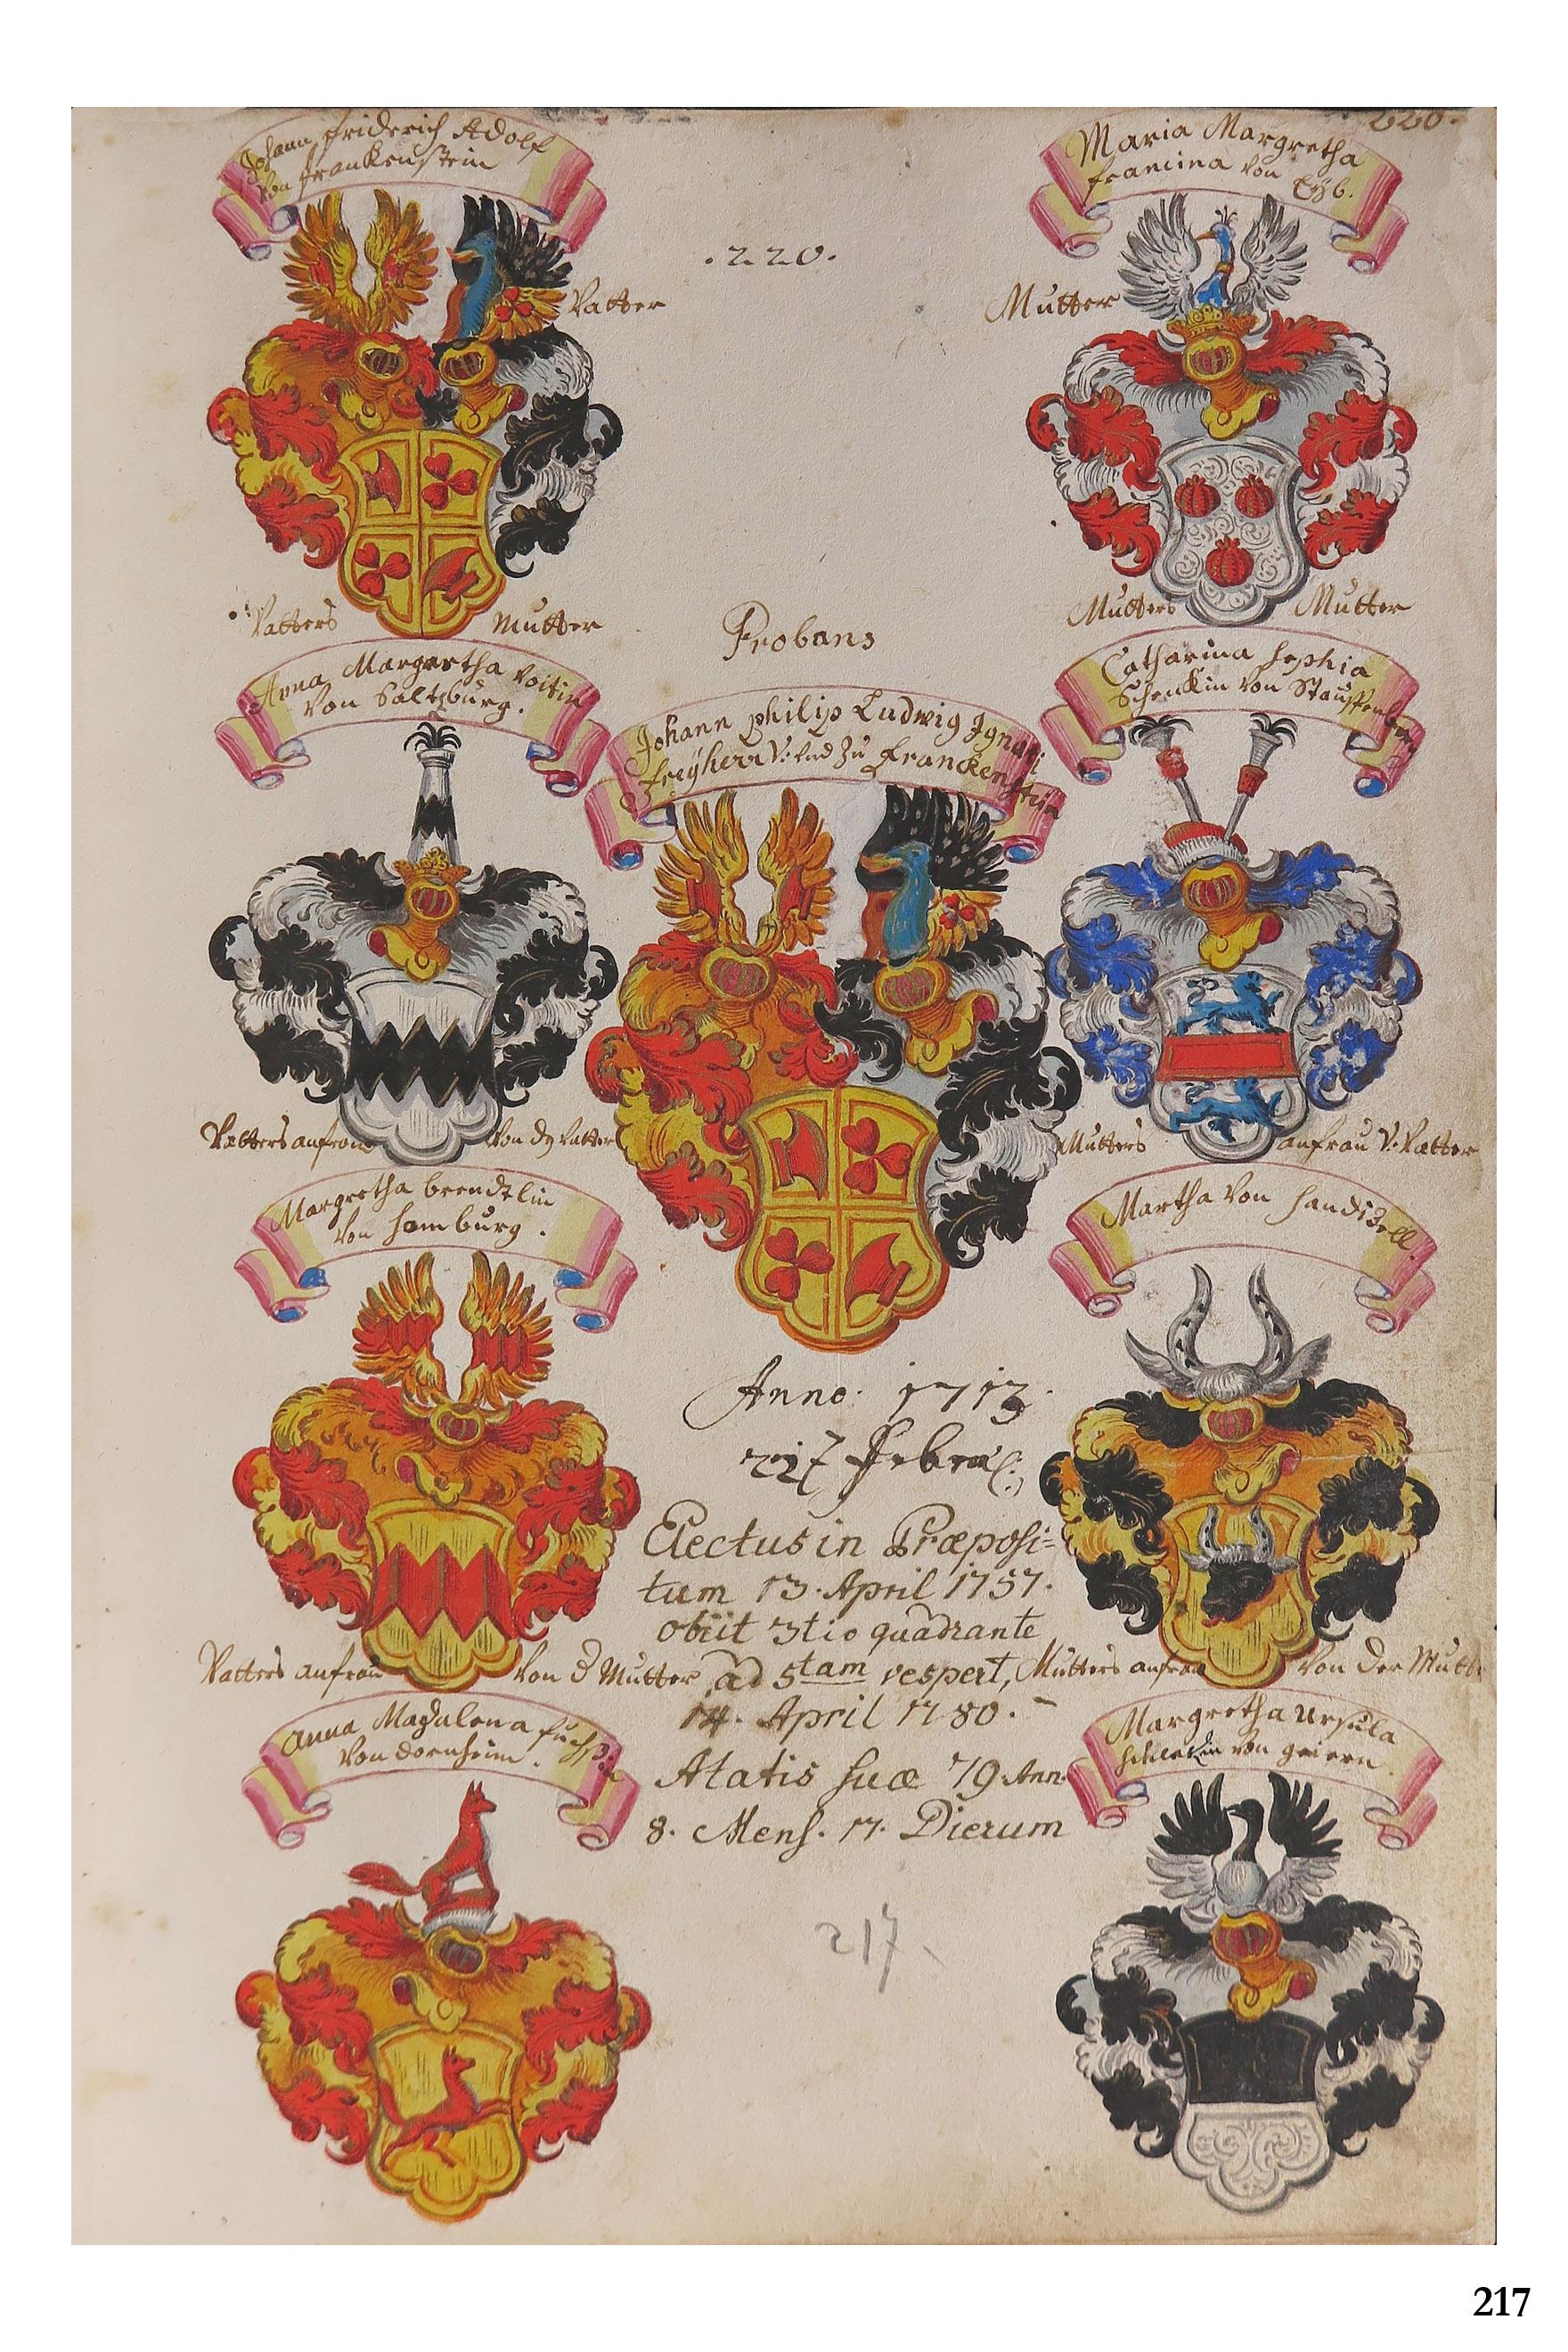 220.
Johann friderich Adolf
Von frankenstein
Vatter
.220.
Maria Margretha
francina von Eyb.
Mutter
Vatters Mutter
Anna Margretha Voitin
Von Saltzburg.
Probans
Johann philip Ludwig Ignati
freyherr V: und Zu franckenstein
Mutters Mutter
Catharina sophia
Schenkin Von Stauffenberg
Vatters anfrau Von d Vatter
Margretha brendtlin
Von homburg.
Mutters anfrau V: Vatter
Martha Von handizell
Anno: 1713.
27 Febra(:)
Electus in Præposi=
tum 13. April 1757.
obiit 3tio quadrante
ad 5tam vespert,
14. April 1780.
Atatis suæ 79 Ann.
8. Mens. 17. Dierum
Vatters anfrau Von d Mutter
Anna Magdalena fuchsin
Von dornheim.
Mutters anfrau Von der Mutt
Margretha Ursula
von geiern
217.
217